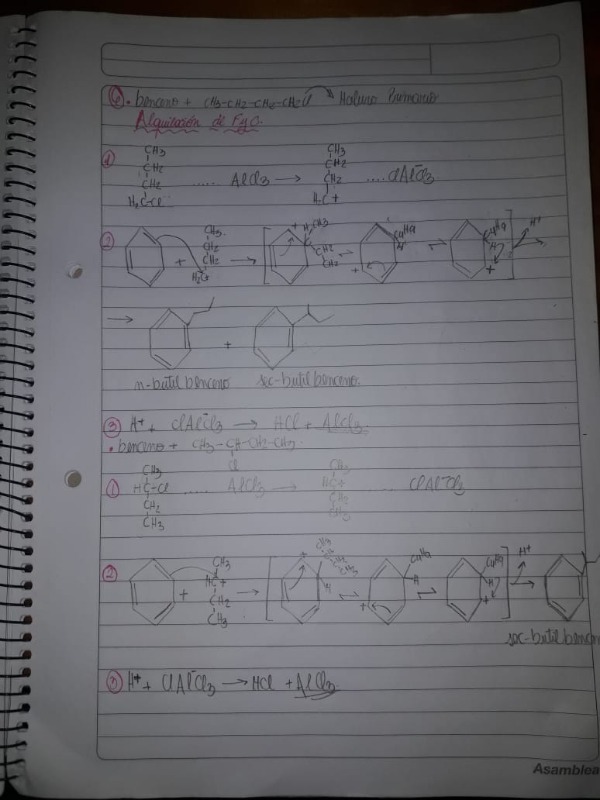 6. benceno + CH3-CH2-CH2-CH2Cl → Haluro Primario
Alquilación de FyC.
1 CH3
CH2
CH2
H2C-Cl ..... AlCl3 →
CH3
CH2
CH2
H2C+ .... ClAlCl3-
2 + CH3
CH2
CH2
H2C+ → [ + H CH3 CH2 CH2 ⇌ + C4H9 H ⇌ C4H9 H + ] H+ →
→ +
n-butil benceno sec-butil benceno.
3 H+ + ClAlCl3- → HCl + AlCl3.
• benceno + CH3-CH-CH2-CH3
Cl
1 CH3
HC-Cl ..... AlCl3 →
CH2
CH3
CH3
HC+ ..... ClAlCl3-
CH2
CH3
2 + CH3
HC+
CH2
CH3 → [ + H ⇌ + C4H9 H ⇌ C4H9 H + ] H+ →
sec-butil benceno
3 H+ + ClAlCl3- → HCl + AlCl3
Asamblea